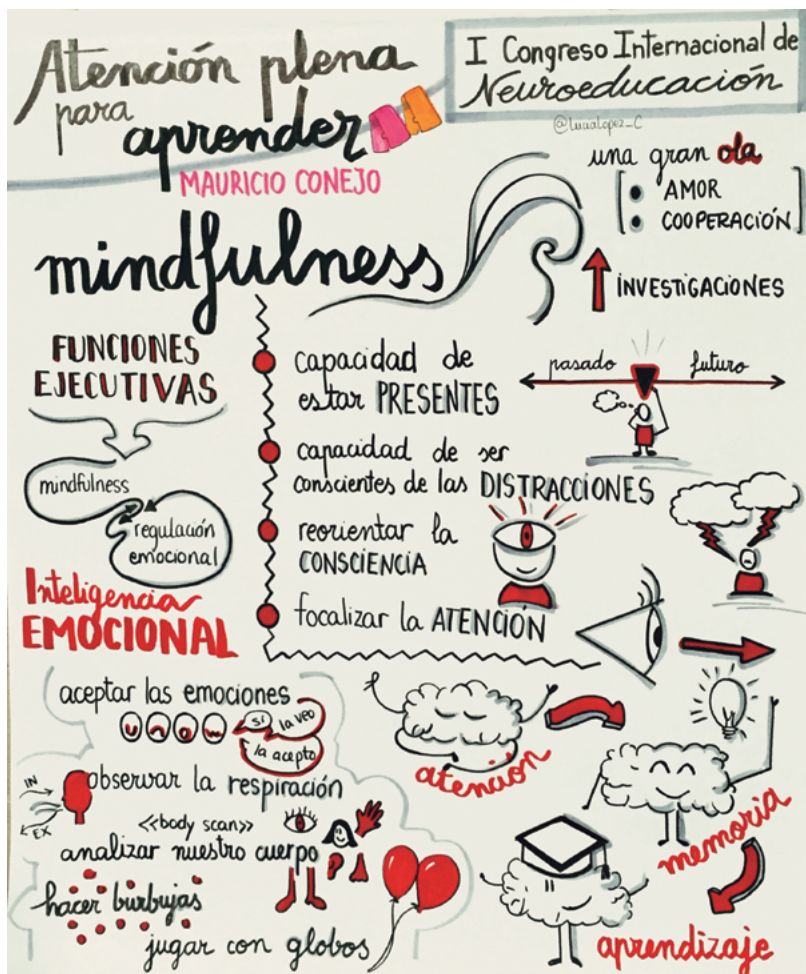 Atención plena
para
aprender
MAURICIO CONEJO
I Congreso Internacional de
Neuroeducación
@LuciaLopez_C
una gran ola
AMOR
COOPERACIÓN
INVESTIGACIONES
mindfulness
FUNCIONES
EJECUTIVAS
mindfulness
regulación
emocional
Inteligencia
EMOCIONAL
capacidad de
estar PRESENTES
pasado futuro
capacidad de ser
conscientes de las DISTRACCIONES
reorientar la
CONSCIENCIA
focalizar la ATENCIÓN
aceptar las emociones
sí
la veo
la acepto
observar la respiración
IN
EX
<<body scan>>
analizar nuestro cuerpo
hacer burbujas
jugar con globos
atención
memoria
aprendizaje